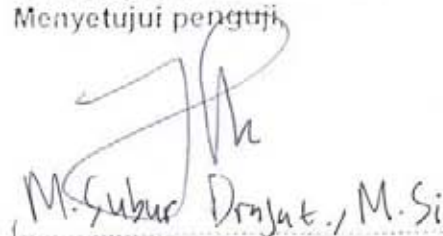 Menyetujui penguji,
M. Subur Drajat., M.Si